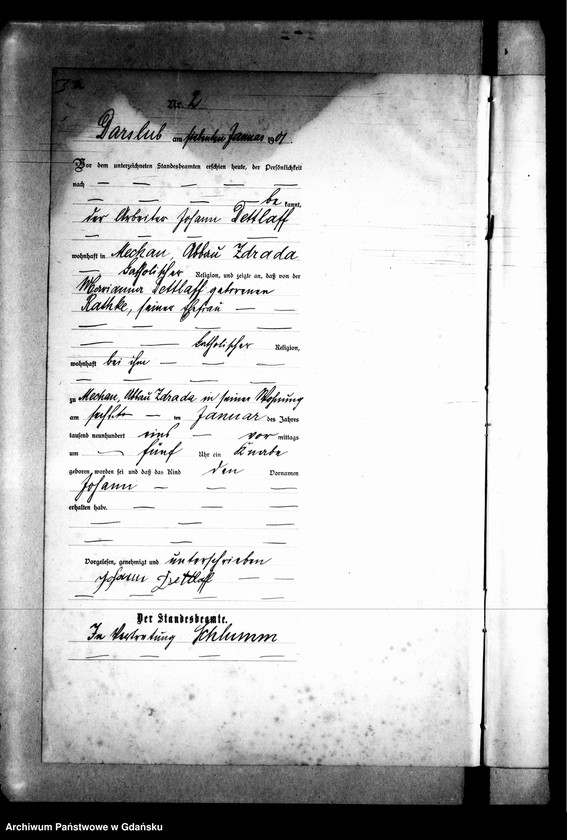 Nr. 2
Darslub am siebenten Januar 1901.
Vor dem unterzeichneten Standesbeamten erschien heute, der Persönlichkeit
nach
be kannt,
der Arbeiter Johann Dettlaff
wohnhaft in Mechau, Abbau Zdrada
katholischer Religion, und zeigte an, daß von der
Marianna Dettlaff geborenen
Rathke, seiner Ehefrau
katholischer Religion,
wohnhaft bei ihm
zu Mechau, Abbau Zdrada in seiner Wohnung
am sechsten ten Januar des Jahres
tausend neunhundert eins vor mittags
um fünf Uhr ein Knabe
geboren worden sei und daß das Kind den Vornamen
Johann
erhalten habe.
Vorgelesen, genehmigt und unterschrieben
Johann Dettlaff
Der Standesbeamte.
In Vertretung Schlumm
Archiwum Państwowe w Gdańsku